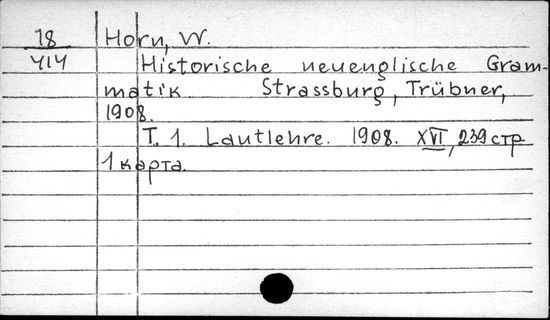 18 Horn, W.
414 Historische neuenglische Gram-
matik Strassburg, Trübner,
1908.
T. 1. Lautlehre. 1908. XVI, 239 стр
1 карта.